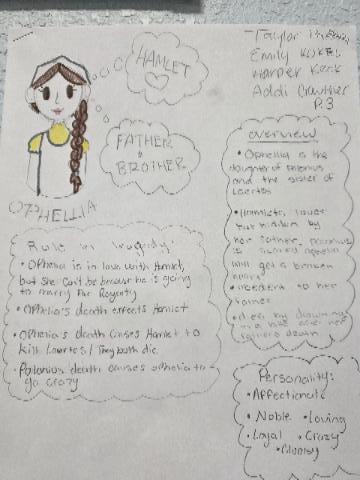 HAMLET
FATHER
&
BROTHER
OPHELLIA
Emily
Harper
Addi
P.3
overview
• Ophellia is the
daughter of Polonius
and the sister of
Laertes
• Hamlets lover
but hidden by
her father,
is scared ophelia
will get a broken
heart
to her
father
• dies by drowning
in a lake after her
fathers death
Role in Tragedy:
• Ophelia is in love with Hamlet,
but she cant be because he is going
to marry for Royalty
• Ophelia's death effects Hamlet
• Ophelia's death causes Hamlet to
kill Laertes / They both die.
• Polonius death causes ophelia to
go crazy
Personality:
• Affectionate
• Noble • Loving
• Loyal • Crazy
• Clumsy